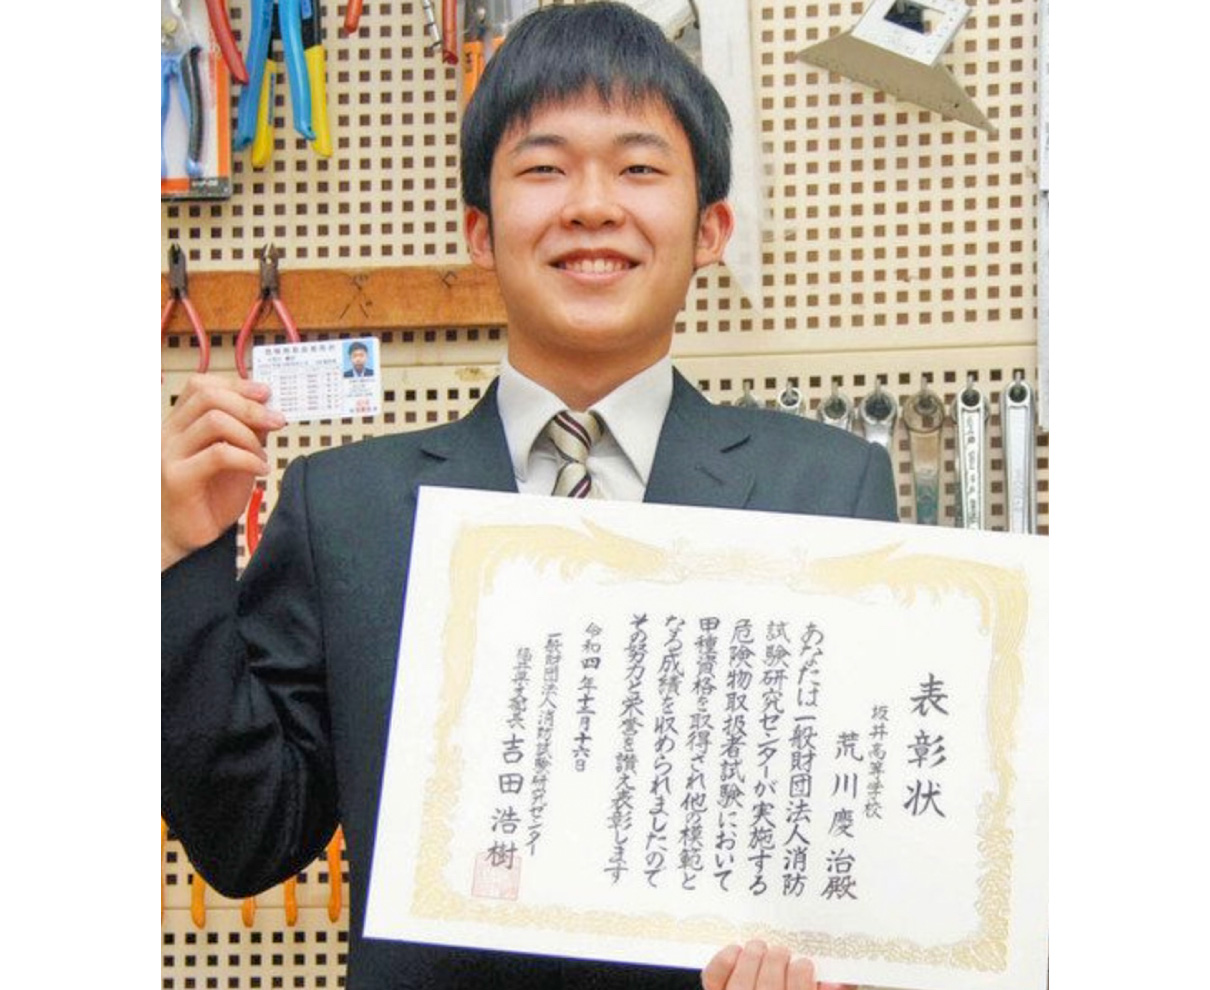 表彰状
坂井高等学校
荒川慶治殿
あなたは一般財団法人消防
試験研究センターが実施する
危険物取扱者試験において
甲種資格を取得され他の模範と
なる成績を収められましたので
その努力と栄誉を讃え表彰します
令和四年十二月十六日
一般財団法人消防試験研究センター
福井県支部長 吉田浩樹